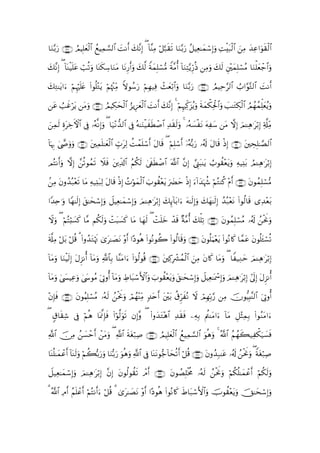 ٱلْقَوَاعِدَ مِنَ ٱلْبَيْتِ وَإِسْمَٰعِيلُ رَبَّنَا تَقَبَّلْ مِنَّآ ۖ إِنَّكَ أَنتَ ٱلسَّمِيعُ ٱلْعَلِيمُ ۝ رَبَّنَا
وَٱجْعَلْنَا مُسْلِمَيْنِ لَكَ وَمِن ذُرِّيَّتِنَآ أُمَّةً مُّسْلِمَةً لَّكَ وَأَرِنَا مَنَاسِكَنَا وَتُبْ عَلَيْنَآ ۖ إِنَّكَ
أَنتَ ٱلتَّوَّابُ ٱلرَّحِيمُ ۝ رَبَّنَا وَٱبْعَثْ فِيهِمْ رَسُولًا مِّنْهُمْ يَتْلُوا۟ عَلَيْهِمْ ءَايَٰتِكَ
وَيُعَلِّمُهُمُ ٱلْكِتَٰبَ وَٱلْحِكْمَةَ وَيُزَكِّيهِمْ ۚ إِنَّكَ أَنتَ ٱلْعَزِيزُ ٱلْحَكِيمُ ۝ وَمَن يَرْغَبُ عَن
مِّلَّةِ إِبْرَٰهِۦمَ إِلَّا مَن سَفِهَ نَفْسَهُۥ ۚ وَلَقَدِ ٱصْطَفَيْنَٰهُ فِى ٱلدُّنْيَا ۖ وَإِنَّهُۥ فِى ٱلْءَاخِرَةِ لَمِنَ
ٱلصَّٰلِحِينَ ۝ إِذْ قَالَ لَهُۥ رَبُّهُۥٓ أَسْلِمْ ۖ قَالَ أَسْلَمْتُ لِرَبِّ ٱلْعَٰلَمِينَ ۝ وَوَصَّىٰ بِهَآ
إِبْرَٰهِۦمُ بَنِيهِ وَيَعْقُوبُ يَٰبَنِىَّ إِنَّ ٱللَّهَ ٱصْطَفَىٰ لَكُمُ ٱلدِّينَ فَلَا تَمُوتُنَّ إِلَّا وَأَنتُم
مُّسْلِمُونَ ۝ أَمْ كُنتُمْ شُهَدَآءَ إِذْ حَضَرَ يَعْقُوبَ ٱلْمَوْتُ إِذْ قَالَ لِبَنِيهِ مَا تَعْبُدُونَ مِنۢ
بَعْدِى قَالُوا۟ نَعْبُدُ إِلَٰهَكَ وَإِلَٰهَ ءَابَآئِكَ إِبْرَٰهِۦمَ وَإِسْمَٰعِيلَ وَإِسْحَٰقَ إِلَٰهًا وَٰحِدًا
وَنَحْنُ لَهُۥ مُسْلِمُونَ ۝ تِلْكَ أُمَّةٌ قَدْ خَلَتْ ۖ لَهَا مَا كَسَبَتْ وَلَكُم مَّا كَسَبْتُمْ ۖ وَلَا
تُسْـَٔلُونَ عَمَّا كَانُوا۟ يَعْمَلُونَ ۝ وَقَالُوا۟ كُونُوا۟ هُودًا أَوْ نَصَٰرَىٰ تَهْتَدُوا۟ ۗ قُلْ بَلْ مِلَّةَ
إِبْرَٰهِۦمَ حَنِيفًا ۖ وَمَا كَانَ مِنَ ٱلْمُشْرِكِينَ ۝ قُولُوٓا۟ ءَامَنَّا بِٱللَّهِ وَمَآ أُنزِلَ إِلَيْنَا وَمَآ
أُنزِلَ إِلَىٰٓ إِبْرَٰهِۦمَ وَإِسْمَٰعِيلَ وَإِسْحَٰقَ وَيَعْقُوبَ وَٱلْأَسْبَاطِ وَمَآ أُوتِىَ مُوسَىٰ وَعِيسَىٰ وَمَآ
أُوتِىَ ٱلنَّبِيُّونَ مِن رَّبِّهِمْ لَا نُفَرِّقُ بَيْنَ أَحَدٍ مِّنْهُمْ وَنَحْنُ لَهُۥ مُسْلِمُونَ ۝ فَإِنْ
ءَامَنُوا۟ بِمِثْلِ مَآ ءَامَنتُم بِهِۦ فَقَدِ ٱهْتَدَوا۟ ۖ وَّإِن تَوَلَّوْا۟ فَإِنَّمَا هُمْ فِى شِقَاقٍ ۖ
فَسَيَكْفِيكَهُمُ ٱللَّهُ ۚ وَهُوَ ٱلسَّمِيعُ ٱلْعَلِيمُ ۝ صِبْغَةَ ٱللَّهِ ۖ وَمَنْ أَحْسَنُ مِنَ ٱللَّهِ
صِبْغَةً ۖ وَنَحْنُ لَهُۥ عَٰبِدُونَ ۝ قُلْ أَتُحَآجُّونَنَا فِى ٱللَّهِ وَهُوَ رَبُّنَا وَرَبُّكُمْ وَلَنَآ أَعْمَٰلُنَا
وَلَكُمْ أَعْمَٰلُكُمْ وَنَحْنُ لَهُۥ مُخْلِصُونَ ۝ أَمْ تَقُولُونَ إِنَّ إِبْرَٰهِۦمَ وَإِسْمَٰعِيلَ
وَإِسْحَٰقَ وَيَعْقُوبَ وَٱلْأَسْبَاطَ كَانُوا۟ هُودًا أَوْ نَصَٰرَىٰ ۗ قُلْ ءَأَنتُمْ أَعْلَمُ أَمِ ٱللَّهُ ۗ